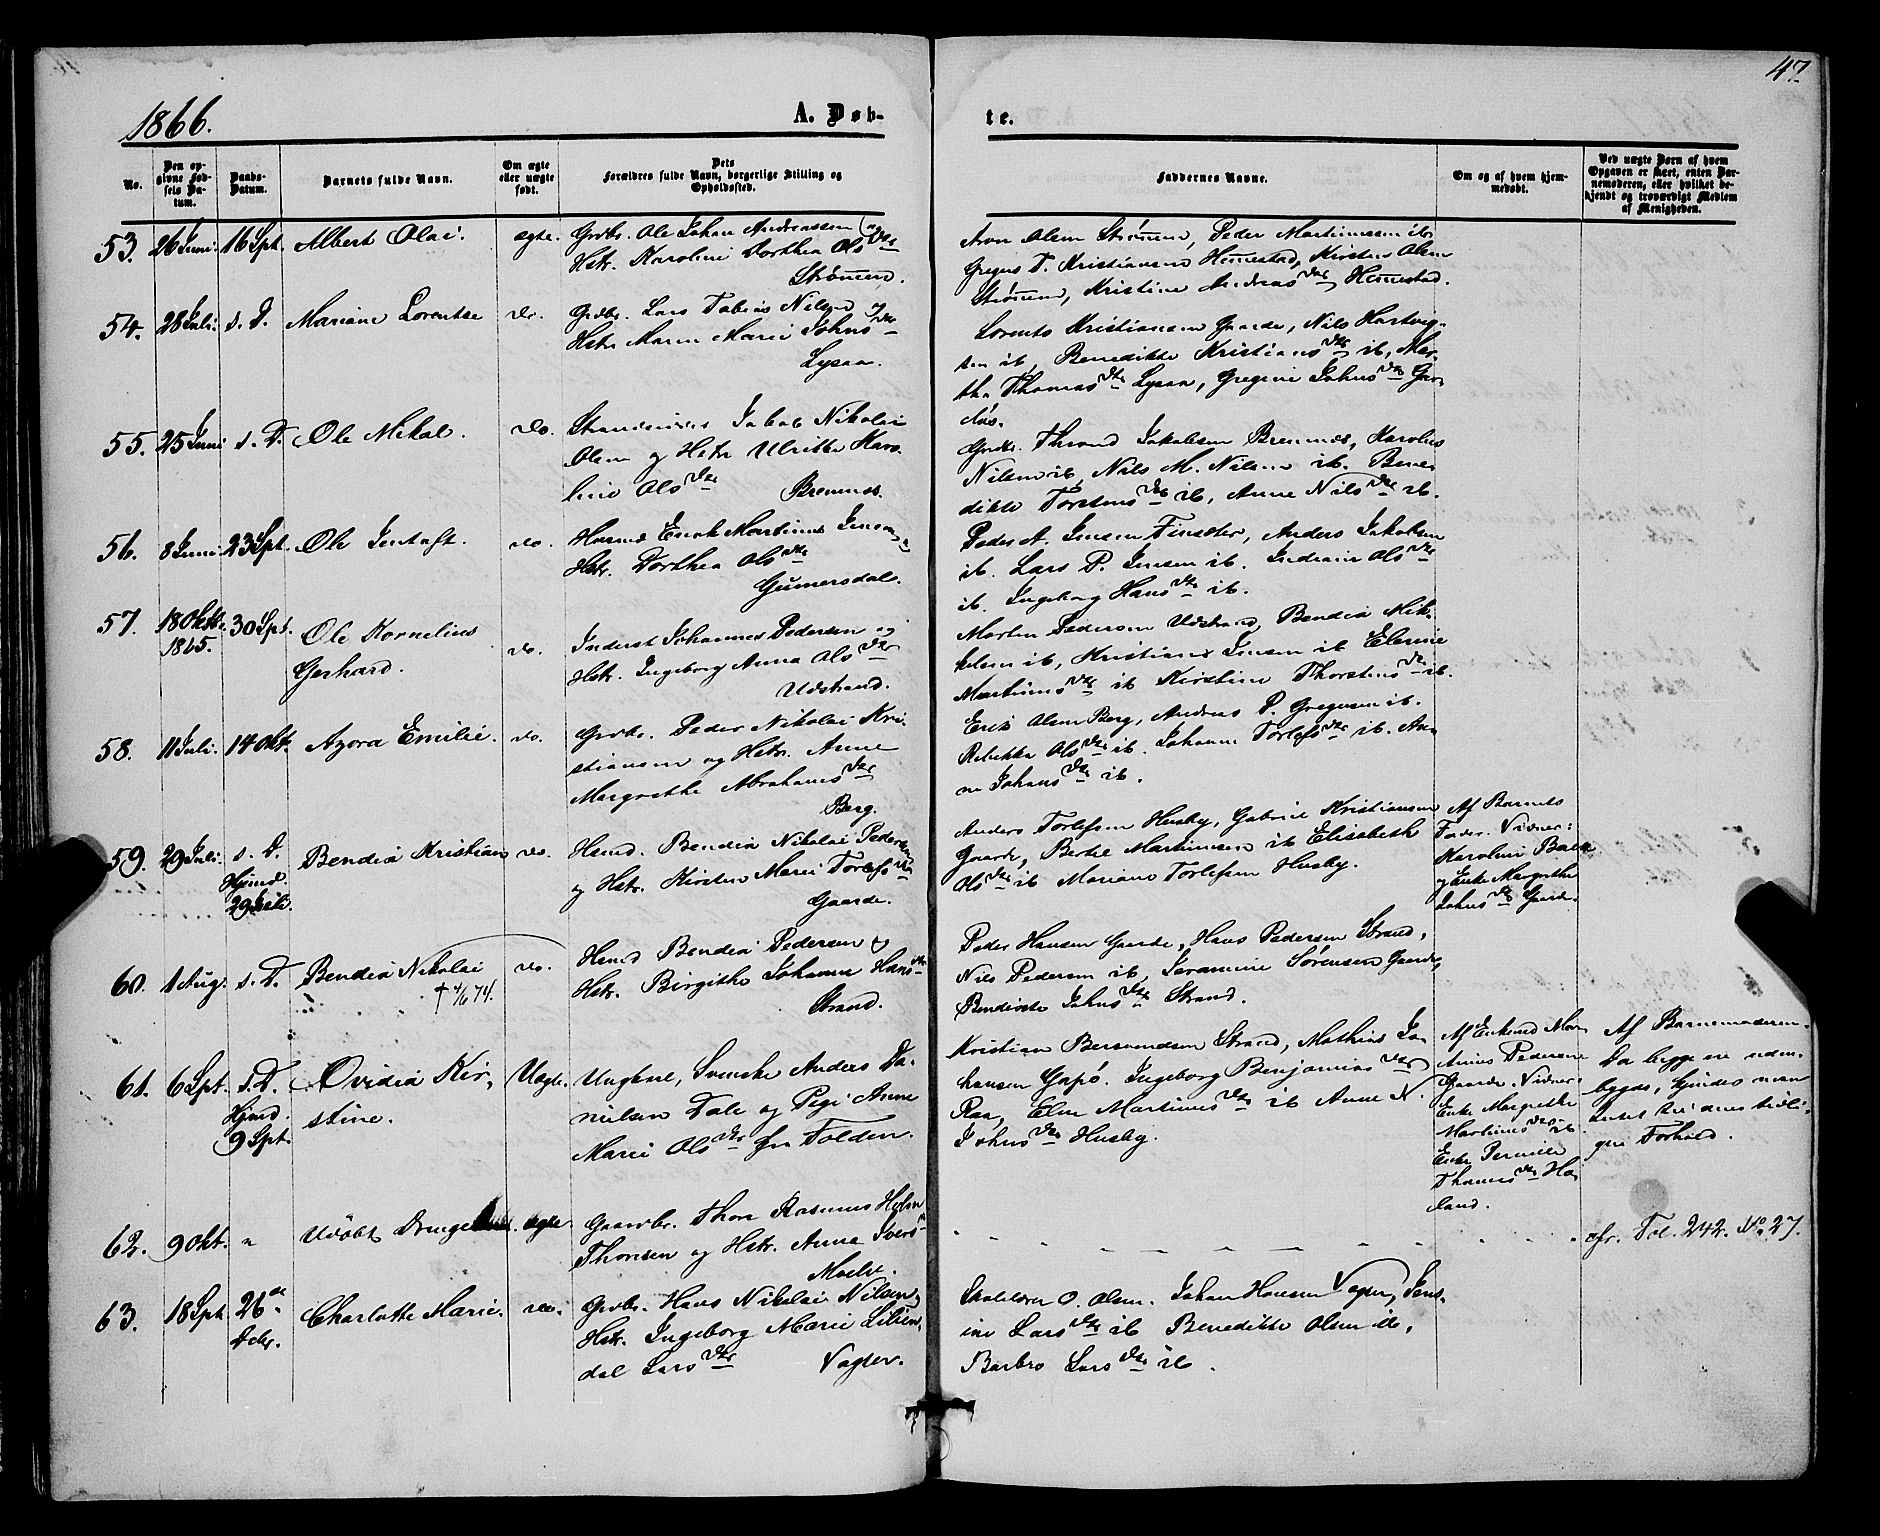 47.
1866.
A. Døb-
te.
No.
Den op-
givne Fød-
sels Da-
tum.
Daabs-
Datum.
Barnets fulde Navn.
Om ægte
eller uægte
født.
Dets
Forældres fulde Navn, borgerlige Stilling og
Opholdssted.
Faddernes Navne.
Om og af hvem hjem-
medøbt.
Ved uægte Børn af hvem
Opgaven er skeet, enten Bar-
nemoderen, eller hvilket be-
kjendt og troværdigt Medlem
af Menigheden.
53. 26 Juni. 16 Spt. Albert Olai. ægte. Grdbr. Ole Johan Andreassen og
Hstr. Karoline Dorthea Olsdtr
Strømen.
Aron Olsen Strømen, Peder Martinussen ib
Gregus T. Kristiansen Hemestad, Kirsten Olsen
Strømen, Kristine Andreasdtr Hemestad.
54. 28 Juli. s. D. Mariane Lorentse do. Grdbr. Lars Tobias Nilsen og
Hstr Maren Marie Johnsdtr
Lysaa.
Lorents Kristiansen Gaarde, Nils Hartvig-
sen ib, Benedikte Kristiansdtr ib, Mar-
the Thomasdtr Lysaa, Gregine Johnsdtr
55. 25 Juni s. D. Ole Mikal. do. Jakob Nikolai
Olsen og Hstr Ulrikke Karo-
line Olsdtr Bremnes.
Grdbr. Thrond Jakobsen Bremnes, Karolius
Nilsen ib, Nils M. Nilsen ib. Bene-
dikte Torstensdtr ib, Anne Nilsdtr ib.
56. 8 Juni 23 Spt. Ole Jentoft. do. Husmd Enok Martinus Jensen og
Hstr. Dorthea Olsdtr
Gumersdal.
Peder A. Jensen Finsæter, Anders Jakobsen
ib. Lars P. Jensen ib. Indiane Olsdtr
ib. Ingeborg Hansdtr ib.
57. 18 Oktbr. 1865. 30 Spt. Ole Kornelius
Gerhard. do. Inderst Johannes Pedersen og
Hstr. Ingeborg Anna Olsdtr
Udstrand.
Morten Pedersen Udstrand, Bendix Mik-
kelsen ib, Kristian Jensen ib Elenne
Martinusdtr ib Kirstine Thorstensdtr ib.
58. 11 Juli. 14 Okt. Azora Emilie. do. Grdbr. Peder Nikolai Kri-
stiansen og Hstr. Anne
Margrethe Abrahamsdtr
Berg.
Erik Olsen Berg, Andreas P. Gregusen ib.
Rebekka Olsdtr ib. Johanne Torlefsdtr ib. An-
ne Johansdtr ib.
59. 29 Juli. s. D.
Hjmd.
29 Juli. Bendix Kristian do. Husmd. Bendix Nikolai Pedersen
og Hstr. Kirsten Marie Torlefsdtr
Gaarde.
Anders Torlefsen Husby, Gabriel Kristiansen
Gaarde, Bertel Martinussen ib Elisabeth
Olsdtr ib Mariane Torlefsen Husby.
Af Barnets
Fader. Vidner:
Karoline
og Enke Margrethe
Johnsdtr Gaarde.
60. 1 Aug. s. D. Bendix Nikolai
† 4/6 74. do. Husmd Bendix Pedersen og
Hstr. Birgithe Johanne Hansdtr
Strand.
Peder Hansen Gaarde, Hans Pedersen Strand,
Nils Pedersen ib, Seramine Sørensen Gaarde,
Bendikte Johnsdtr Strand.
61. 6 Spt. s. D.
Hjmd.
9 Spt. Ovidia Kir-
stine. Uægte. Ungkarl, Svenske Anders Da-
nielsen Dale og Pige Anne
Marie Olsdtr fra Folden.
Kristian Bersvendsen Strand, Mathias Jo-
hansen Gapø. Ingeborg Benjaminsdtr
Raa, Elen Martinusdtr ib Anne N.
Johnsdtr Husby.
Af Enkemd Mar-
tinus Pedersen
Gaarde. Vidner:
Enke Margrethe
Martinusdtr ib
Enke Pernille
Thomasdtr Ha-
land.
Af Barnemoderen.
Da begge ere uden-
bygds, kjendes man
intet til deres tidli-
gere Forhold.
62. 9 Okt. " Udøbt Drengebarn. ægte. Gaardbr. Thore Rasmus Holm
Thomsen og Hstr. Anna Iversdtr
Moelv.
cfr. Fol. 242. No 27.
63. 18 Spt. 26de
Debr. Charlotte Marie. do. Grdbr. Hans Nikolai Nilsen,
Hstr. Ingeborg Marie Lilien-
dal Larsdtr Vagter.
Skolelærer O. Olsen. Johan Hansen Vagter, Jens-
ine Larsdtr ib Benedikte Olsen ib,
Barbro Larsdtr ib.